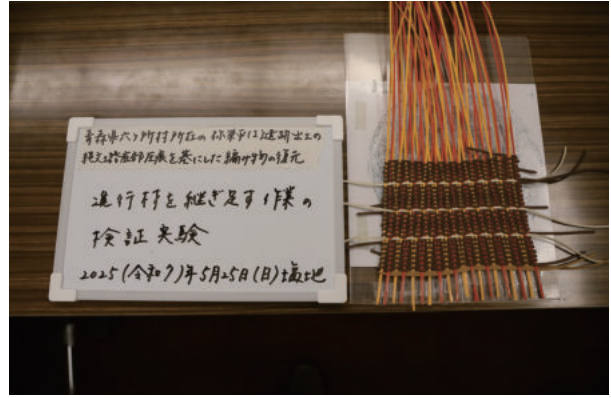 青森県六ヶ所村所在の弥栄平(1)遺跡出土の
縄文土器底部圧痕を基にした編み物の復元
進行材を継ぎ足す作業の
検証実験
2025(令和7)年5月25日(日)